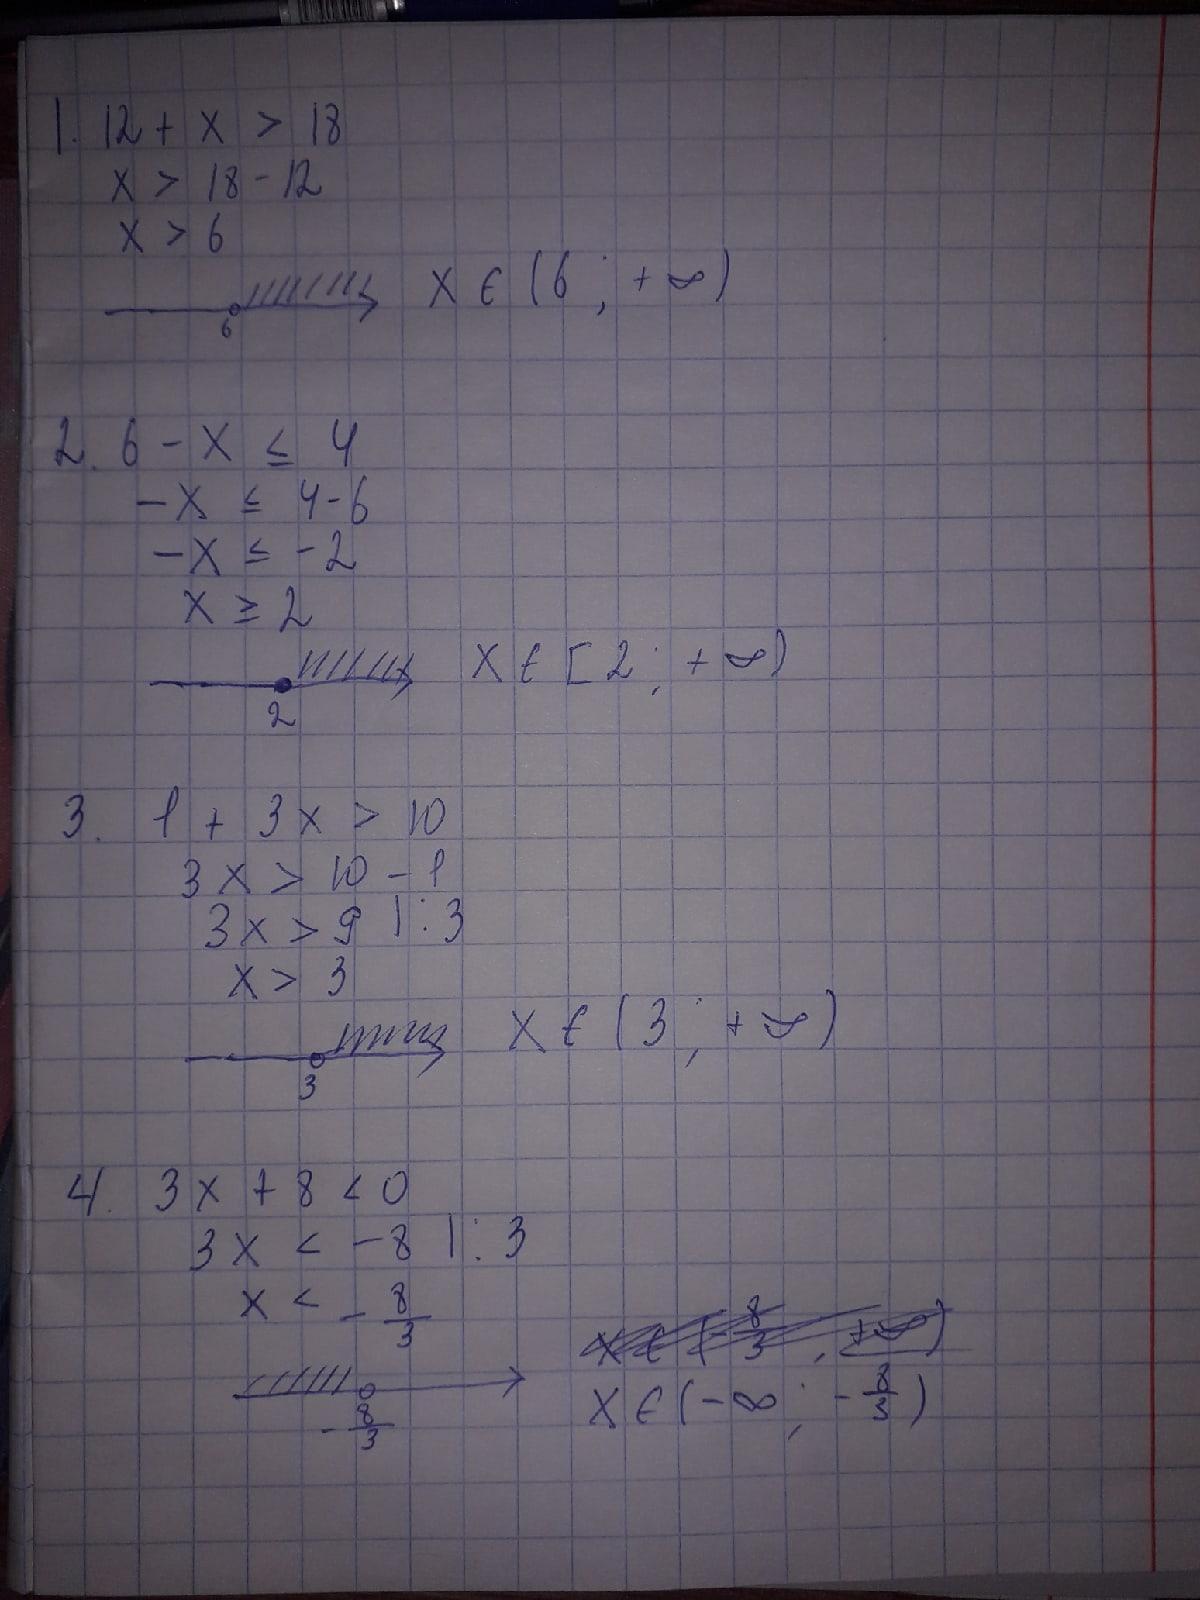 1. 12 + x > 18
x > 18 - 12
x > 6
6
x ∈ (6 ; +∞)
2. 6 - x ≤ 4
-x ≤ 4-6
-x ≤ -2
x ≥ 2
2
x ∈ [2 ; +∞)
3. 1 + 3x > 10
3x > 10 - 1
3x > 9 |:3
x > 3
3
x ∈ (3 ; +∞)
4. 3x + 8 < 0
3x < -8 |:3
x < -8/3
x ∈ (-8/3 ; +∞)
-8/3
x ∈ (-∞ ; -8/3)